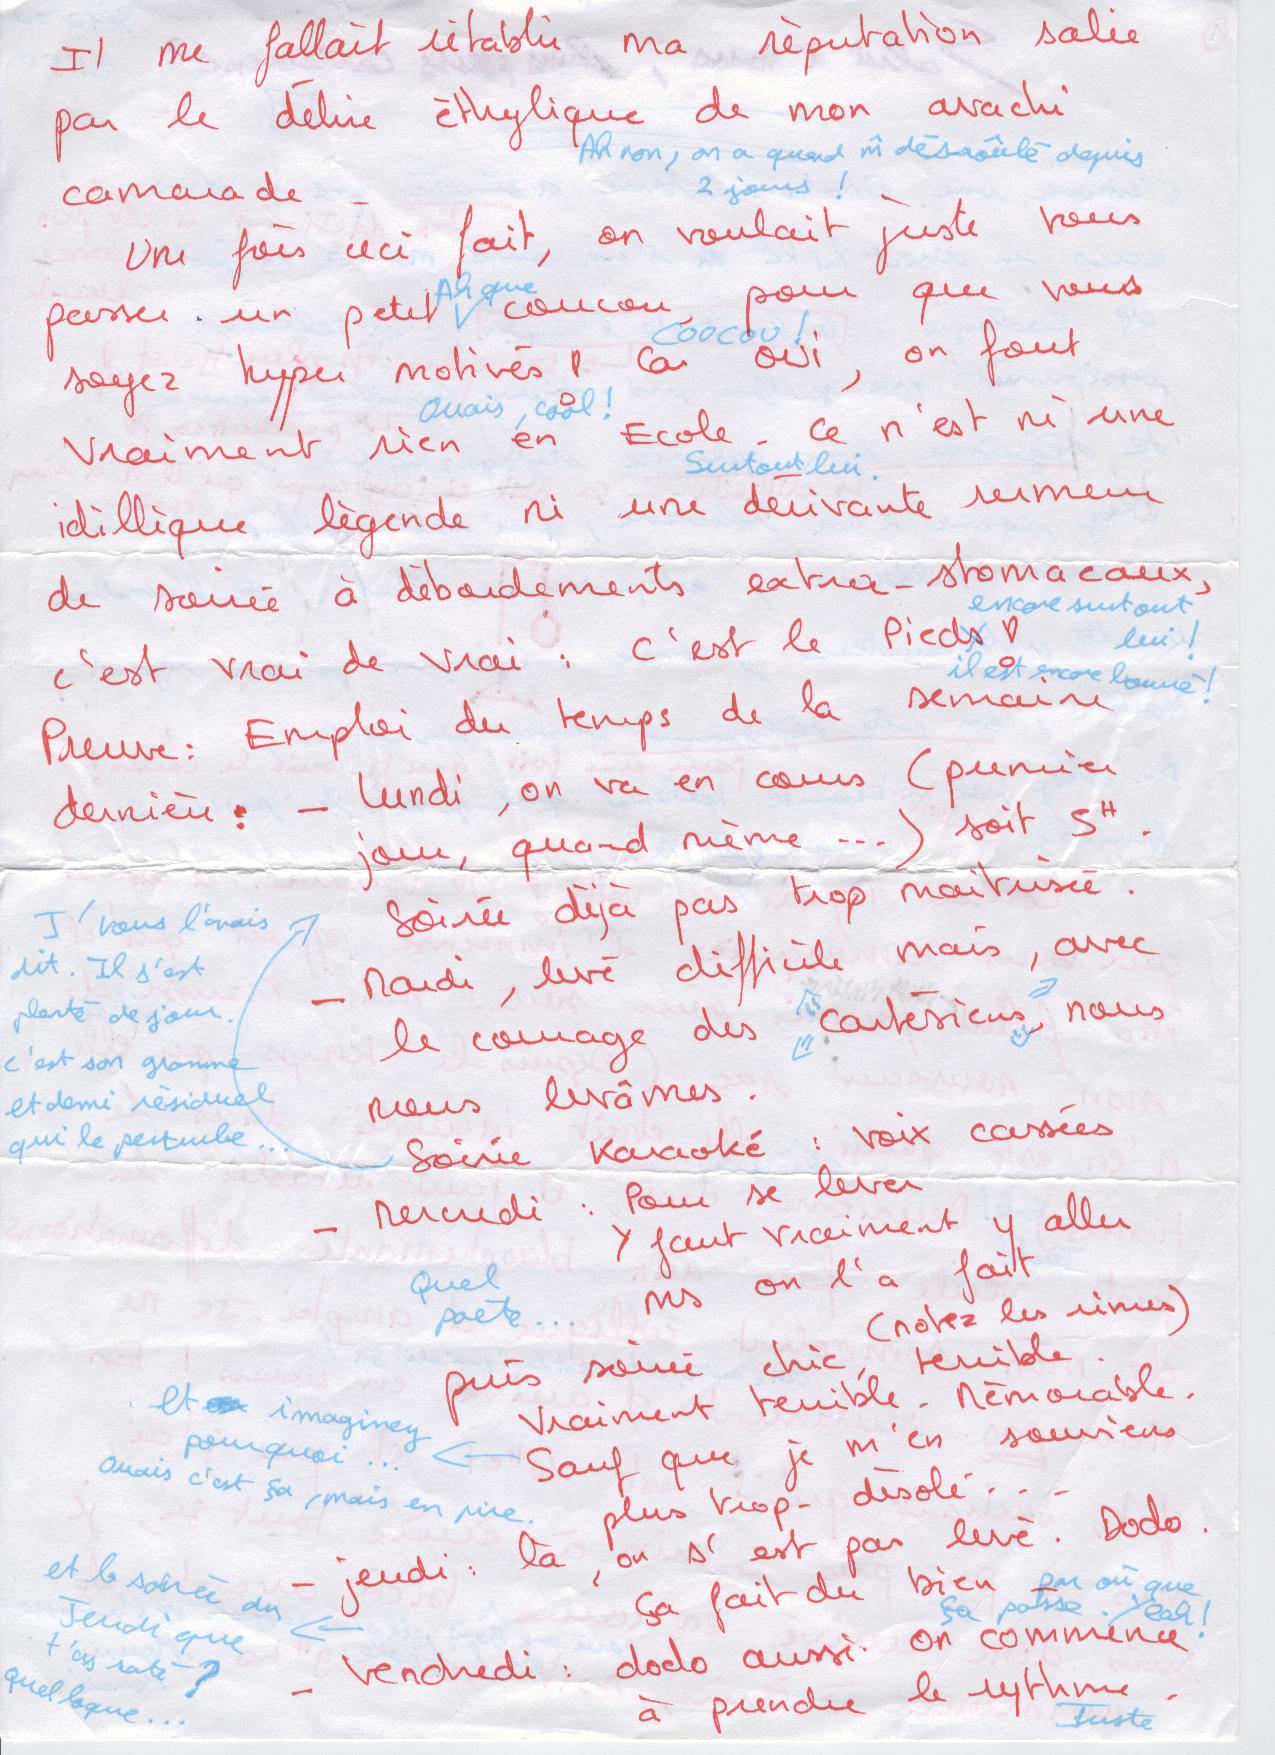 Il me fallait rétablir ma réputation salie
par le délire éthylique de mon avachi
Ah non, on a quand m̂ désaoûlé depuis
2 jours !
camarade -
Une fois ceci fait, on voulait juste vous
Ah que
passer un petit coucou, pour que vous
COOCOU !
soyez hyper motivés ! Car oui, on fout
Ouais, cool !
vraiment rien en Ecole. Ce n'est ni une
Surtout lui.
idillique légende ni une dérivante rumeur
de soirée à débordements extra-stomacaux,
encore surtout
lui !
c'est vrai de vrai : c'est le Pieds !
il est encore bourré !
Preuve : Emploi du temps de la semaine
dernière : - Lundi, on va en cours (premier
jour, quand même ...) soit 5H.
Soirée déjà pas trop maitrisée.
J'vous l'avais
dit. Il s'est
planté de jour.
c'est son gramme
et demi résiduel
qui le perturbe...
- Mardi, levé difficile mais, avec
le courage des cartésiens, nous
nous levâmes.
Soirée Karaoké : voix cassées
- Mercredi : Pour se lever
Y faut vraiment y aller
ms on l'a fait
(notez les rimes)
Quel
poète...
puis soirée chic, terrible.
Vraiment terrible. Mémorable.
Sauf que je m'en souviens
plus trop - désolé...
et imaginez
pourquoi ...
Ouais c'est ça, mais en pire.
- jeudi : là, on s'est pas levé. Dodo.
Ça fait du bien
par où que
ça passe. Yeah !
et la soirée du
Jeudi que
t'as raté ?
quel loque...
- Vendredi : dodo aussi. On commence
à prendre le rythme.
Juste